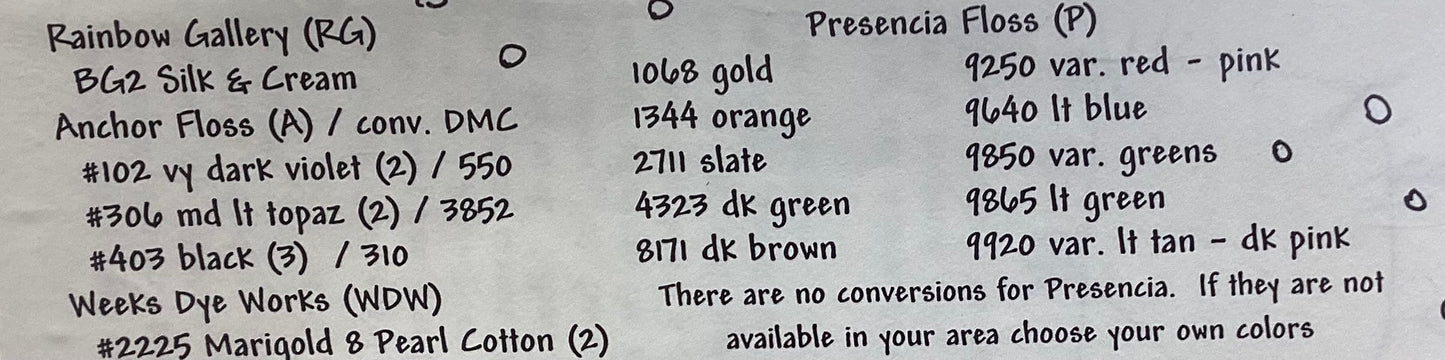 Rainbow Gallery (RG)
BG2 Silk & Cream
Anchor Floss (A) / conv. DMC
#102 vy dark violet (2) / 550
#306 md lt topaz (2) / 3852
#403 black (3) / 310
Weeks Dye Works (WDW)
#2225 Marigold 8 Pearl Cotton (2)
Presencia Floss (P)
1068 gold
1344 orange
2711 slate
4323 dk green
8171 dk brown
9250 var. red - pink
9640 lt blue
9850 var. greens
9865 lt green
9920 var. lt tan - dk pink
There are no conversions for Presencia. If they are not
available in your area choose your own colors